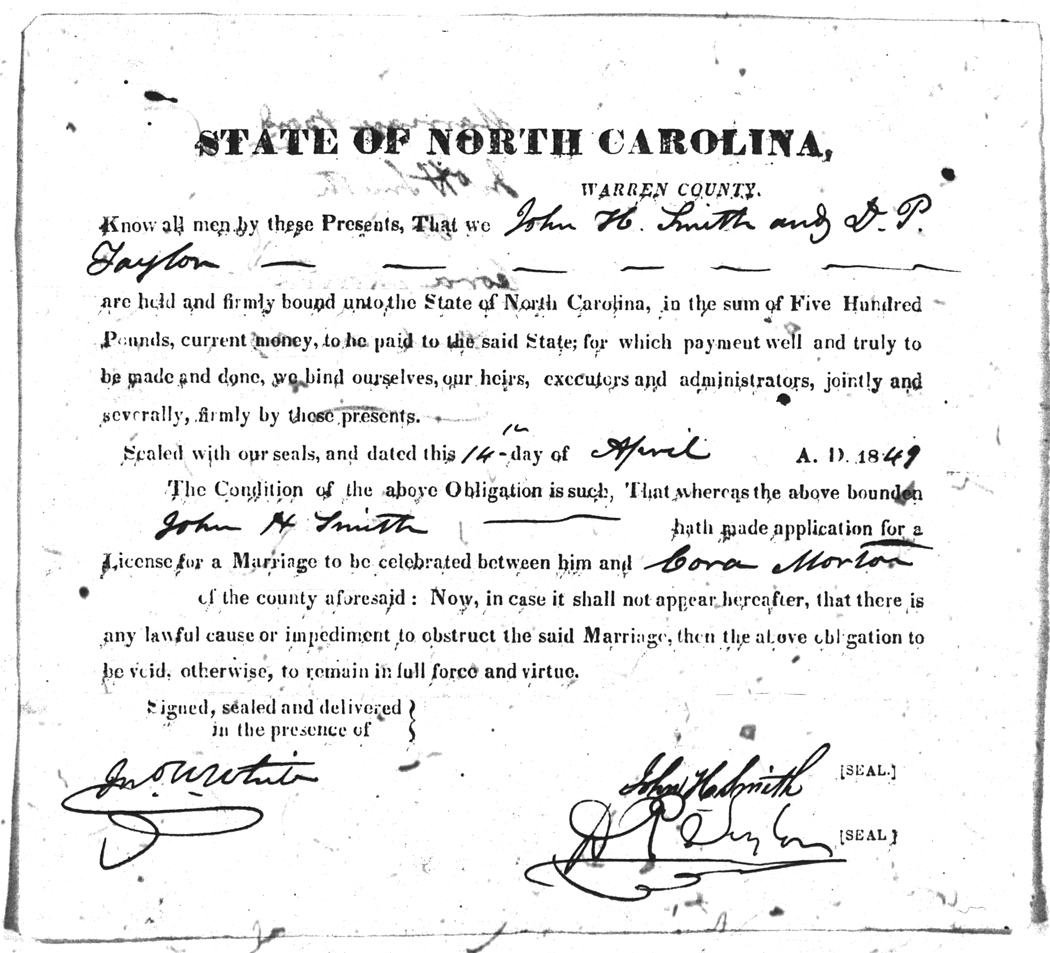 STATE OF NORTH CAROLINA,
WARREN COUNTY.
Know all men by these Presents, That we John H. Smith and D. P.
Taylor
are held and firmly bound unto the State of North Carolina, in the sum of Five Hundred
Pounds, current money, to be paid to the said State; for which payment well and truly to
be made and done, we bind ourselves, our heirs, executers and administrators, jointly and
severally, firmly by these presents.
Sealed with our seals, and dated this 14th day of April A. D. 1849
The Condition of the above Obligation is such, That whereas the above bounden
John H Smith hath made application for a
License for a Marriage to be celebrated between him and Cora Morton
of the county aforesaid: Now, in case it shall not appear hereafter, that there is
any lawful cause or impediment to obstruct the said Marriage, then the above obligation to
be void, otherwise, to remain in full force and virtue.
Signed, sealed and delivered
in the presence of
Jno. W. White
John H. Smith [SEAL.]
D P Taylor [SEAL]